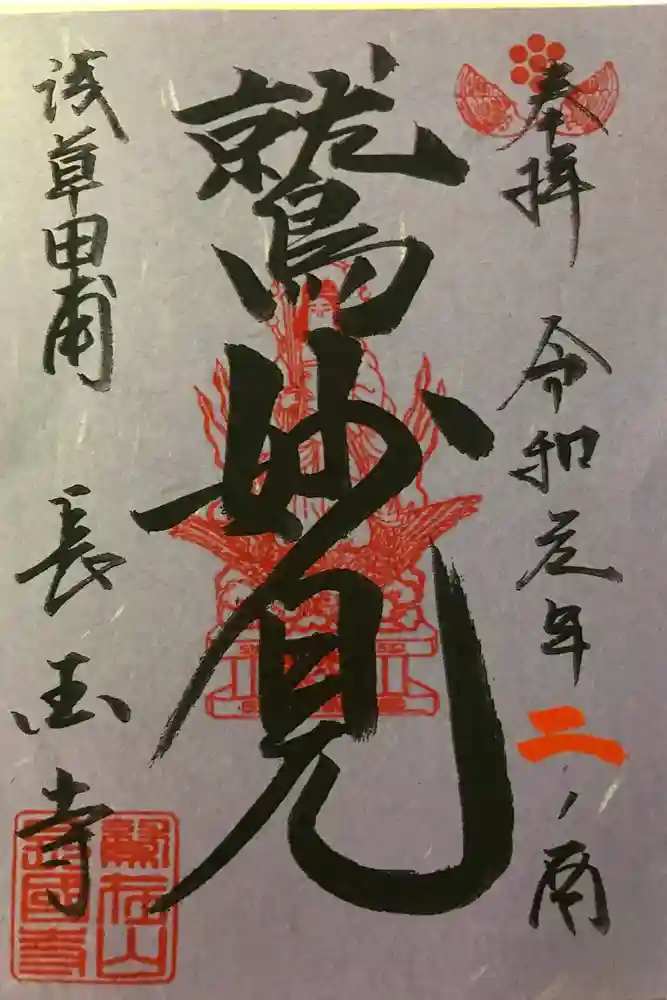 奉拝
令和元年二ノ酉
鷲妙見
浅草田甫
長国寺
鷲在山
長國寺